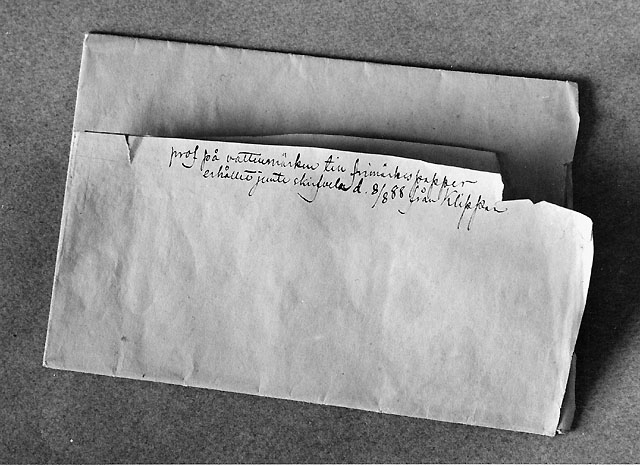 prof på vattenmärken till frimärkspapper
erhållet jemte skrifvelse d. 8/8 88 från Klippan